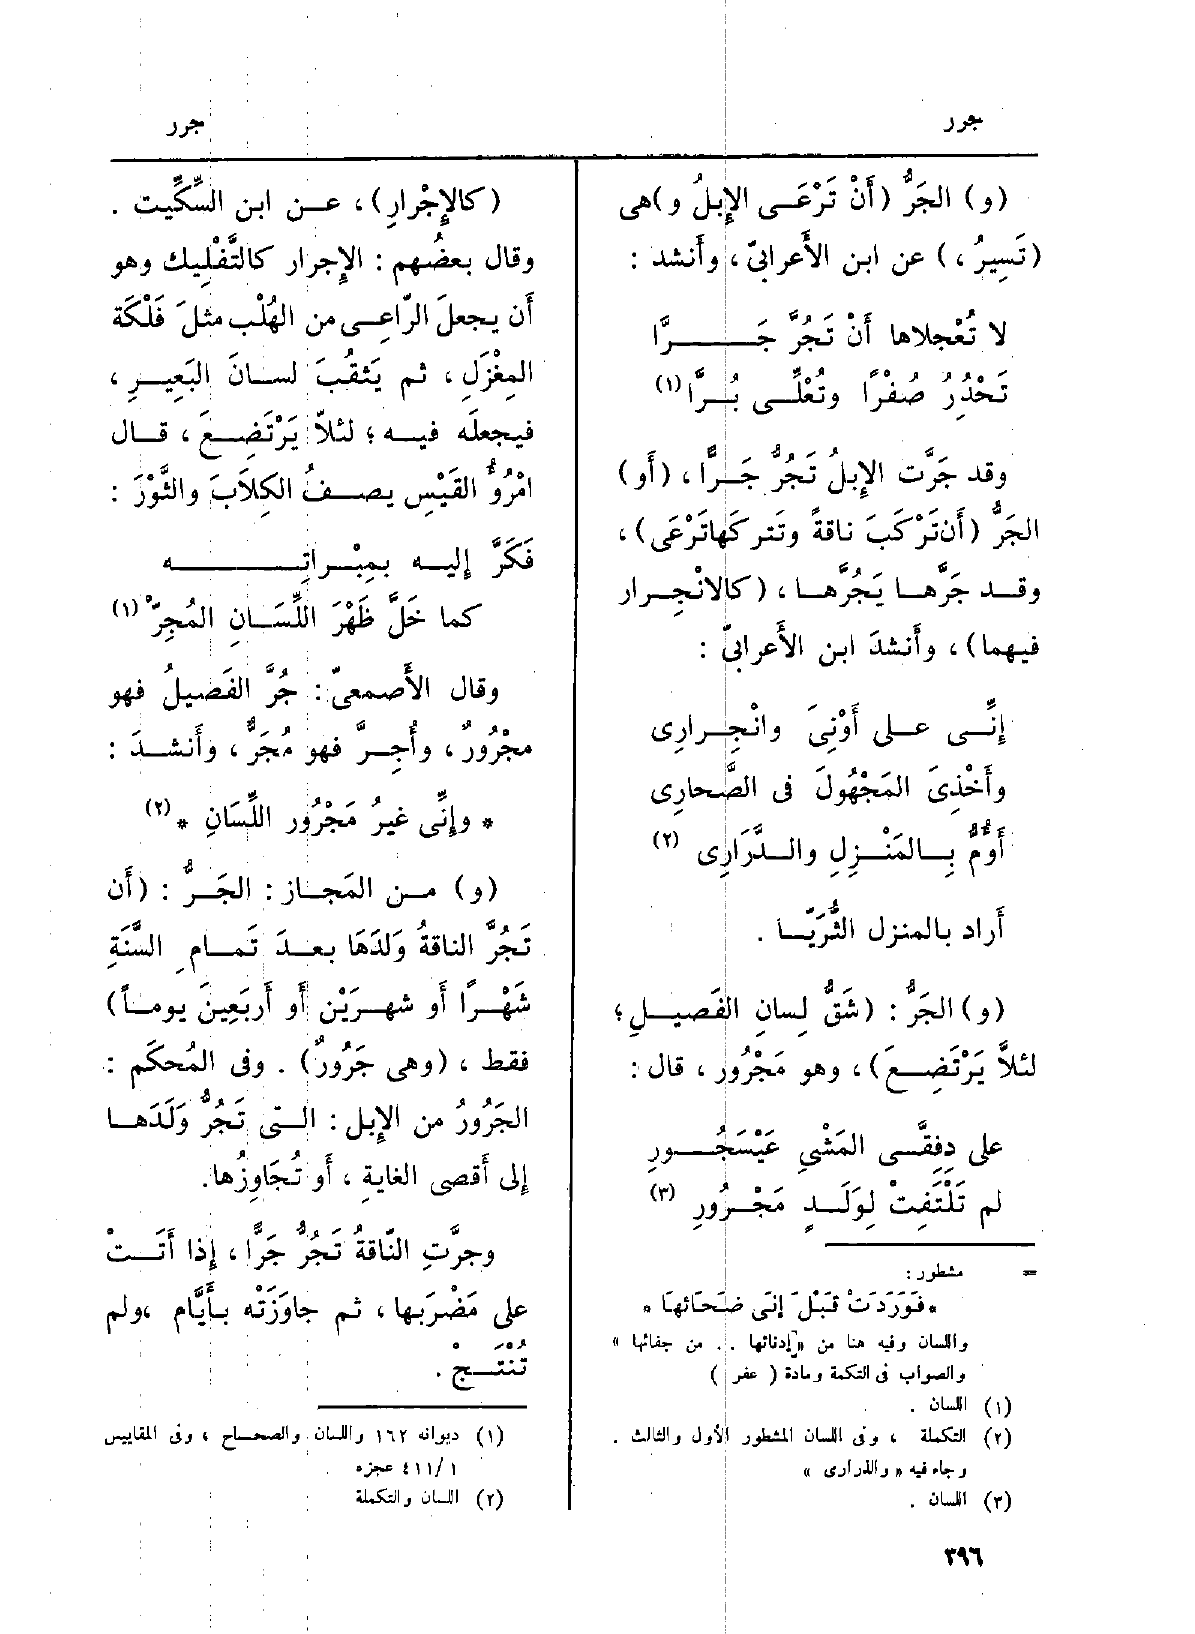 جرر
جرر
(و) الجَرُّ (أَنْ تَرْعَى الإِبلُ و)هى
(تَسِيرُ ،) عن ابن الأَعرابىّ ، وأَنشد :
لا تُعْجِلاها أَنْ تَجُرَّ جَرًّا
تَحْدُرُ صُفْرًا وتُعْلِّى بُرًّا (١)
وقد جَرَّت الإِبلُ تَجُرُّ جَرًّا ، (أَو)
الجَرُّ (أَن تَرْكَبَ ناقةً وتَتركَها تَرْعَى) ،
وقد جَرَّها يَجُرُّها ، (كالانْجِرار
فيهما) ، وأَنشدَ ابن الأَعرابىّ :
إِنِّى على أَوْنِىَ وانْجِرارِى
وأَخْذِىَ المَجْهُولَ فى الصَّحارِى
أَؤُمُّ بالمَنْزِلِ والدَّرَارِى (٢)
أَراد بالمنزل الثُّرَيَّا .
(و) الجَرُّ : (شَقُّ لِسانِ الفَصِيلِ ؛
لئلاَّ يَرْتَضِعَ) ، وهو مَجْرُور ، قال :
على دِفِقَّى المَشْىِ عَيْسَجُورِ
لم تَلْتَفِتْ لِوَلَدٍ مَجْرُورِ (٣)
= مشطور :
* فوَرَدَتْ قَبْلَ إنَى ضَحَائها *
واللسان وفيه هنا من «إدنائها .. من جفائها »
والصواب فى التكملة ومادة ( عفر )
(١) اللسان .
(٢) التكملة ، وفى اللسان المشطور الأول والثالث .
وجاء فيه « والذرارى »
(٣) اللسان .
(كالإِجْرارِ) ، عن ابن السِّكِّيت .
وقال بعضُهم : الإِجرار كالتَّفْلِيك وهو
أَن يجعلَ الرّاعِى من الهُلْب مثلَ فَلْكَة
المِغْزَلِ ، ثم يَثقُبَ لسانَ البَعِيرِ ،
فيجعلَه فيه ؛ لئلاّ يَرْتَضِعَ ، قال
امْرُؤُ القَيْسِ يصفُ الكِلاَبَ والثَّوْرَ :
فَكَرَّ إِليه بمِبْراتِه
كما خَلَّ ظَهْرَ اللِّسَانِ المُجِرّْ (١)
وقال الأَصمعىّ : جُرَّ الفَصِيلُ فهو
مجْرُورٌ ، وأُجِرَّ فهو مُجَرٌّ ، وأَنشدَ :
* وإِنِّى غيرُ مَجْرُور اللِّسَانِ * (٢)
(و) من المَجاز : الجَرُّ : (أَن
تَجُرَّ الناقةُ وَلدَهَا بعدَ تَمامِ السَّنَةِ
شَهْرًا أَو شهرَيْن أَو أَربَعِينَ يوماً)
فقط ، (وهى جَرُورٌ) . وفى المُحكَم :
الجَرُورُ من الإِبل : التى تَجُرُّ وَلَدَها
إِلى أَقصى الغاية ، أَو تُجَاوِزُها.
وجرَّتِ النّاقةُ تَجُرُّ جَرًّا ، إِذا أَتَتْ
على مَضْرَبها ، ثم جاوَزَتْه بأَيَّام ،ولم
تُنْتَجْ .
(١) ديوانه ١٦٢ واللسان والصحاح ، وفى المقاييس
٤١١/١ عجزه .
(٢) اللسان والتكملة
٣٩٦